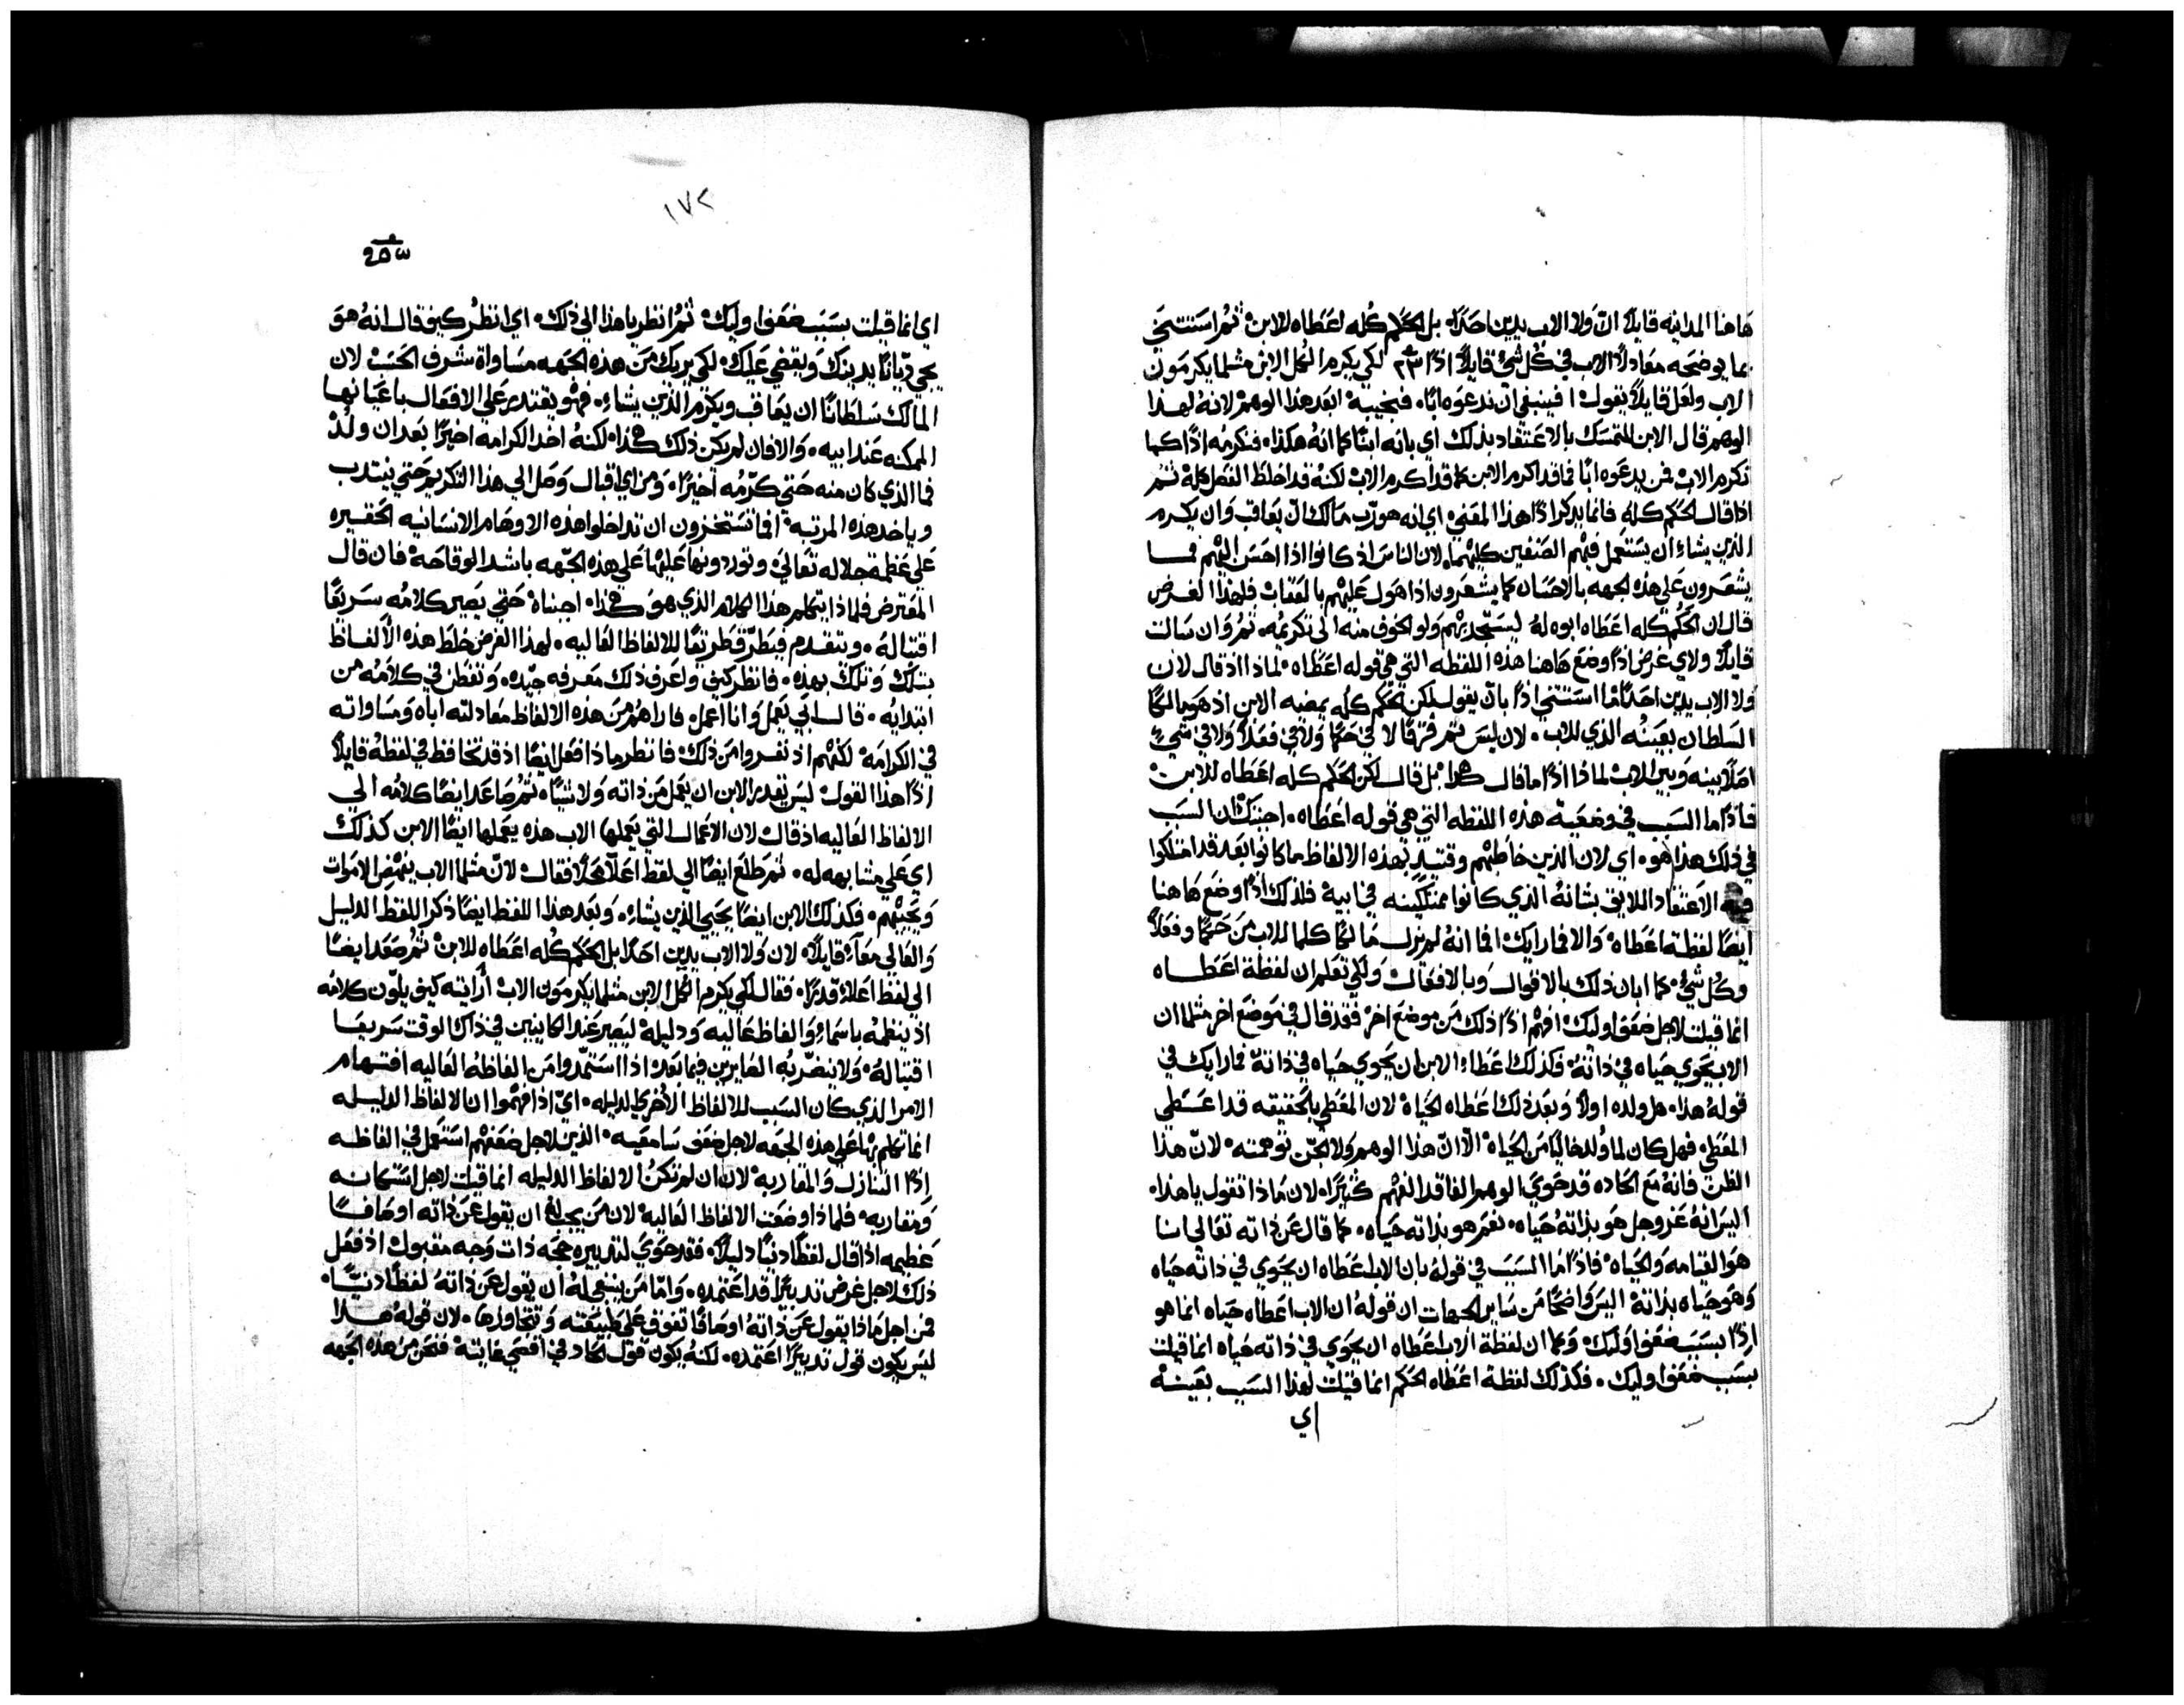 هاهنا المداينه قايلاً انّ ولا الاب يدين احدًا، بل الحكم كله اعطاه للابن، ثم استنتج
بما يوضحه معادلاً الاب في كل شيٍ قايلاً اذًا ٢٣ لكي يكرم الكل الابن مثلما يكرمون
الاب ولعل قايلاً يقول افينبغي ان ندعوه ابًا، فنجيبه ابعد هذا الوهم لانه لهذا
الوهم قال الابن للتمسك بالاعتقاد بذلك اي بانه ابنًا كما انه هكذا، فنكرمه اذًا كما
نكرم الاب فمن يدعوه ابًا فما قد اكرم الابن كما قد اكرم الاب لكنه قد اخلط الفصل كله ثم
اذا قال الحكم كله فانما يذكر اذًا هذا المعني اي انه هو ربّ مالك ان يعاقب وان يكرم
الذين يشاء ان يستعمل فيهم الصنفين كليهما، لان الناس اذ كانوا اذا احسن اليهم فما
يشعرون على هذه الجهه بالاحسان كما يشعرون اذا هول عليهم بالعقاب فلهذا الغرض
قال ان الحكم كله اعطاه ابوه له ليستجذبهم ولو الخوف منه الى تكريمه، ثم وان سالت
قايلاً ولاي غرض اذًا وضع هاهنا هذه اللفظه التي هي قوله اعطاه، لماذا اذ قال لان
ولا الاب يدين احدًا ما استثني اذًا بان يقول لكن الحكم كله يمضيه الابن اذ هو مالكًا
السلطان بعينه الذي للاب، لان ليس ثم فرقًا لا في حكمًا ولا في فعلاً ولا في شيٍ
اصلاً بينه وبين الاب لماذا اذًا ما قال هكذا بل قال لكن الحكم كله اعطاه للابن
فاذًا ما السبب في وضعية هذه اللفظه التي هي قوله اعطاه، اجبتك ان السبب
في ذلك هذا هو، اي لان الذين خاطبهم وقتيذٍ بهذه الالفاظ ما كانوا بعد قد امتلكوا
فيه الاعتقاد اللايق بشانه الذي كانوا ممتلكينه في ابيه فلذلك اذًا وضع هاهنا
ايضًا لفظة اعطاه والا فما رايك افما انه لم يزل مالكًا كلما للاب من حكمًا وفعلاً
وكل شيٍ، كما ابان ذلك بالاقوال وبالافعال ولكي تعلم ان لفظة اعطاه
انما قيلت لاجل ضعف اوليك افهم اذًا ذلك من موضع اخر فقد قال في موضع اخر مثلما ان
الاب يحوي حياه في ذاته، فكذلك اعطاء الابن ان يحوي حياه في ذاته فما رايك في
قوله هذا، هل ولده اولاً وبعد ذلك اعطاه الحياه لان المعطي بالحقيقه قد اعطي
المعطى، فهل كان لما ولد خاليًا من الحياه الا ان هذا الوهم ولا الجن توهمته، لان هذا
الظن فانه مع الحاده قد حوي الوهم الفاقد الفهم كثيرًا، لان ماذا تقول يا هذا،
اليس انه عز وجل هو بذاته حياه، نعم هو بذاته حياه، كما قال عن ذاته تعالى انا
هو القيامه والحياه، فاذًا ما السبب في قوله بان الاب اعطاه ان يحوي في ذاته حياه
وهو حياه بذاته اليس واضحًا من ساير الجهات ان قوله ان الاب اعطاه حياه انما هو
اذًا بسبب ضعف اوليك، وكما ان لفظة الاب اعطاه ان يحوي في ذاته حياه انما قيلت
بسبب ضعف اوليك، فكذلك لفظة اعطاه الحكم انما قيلت لهذا السبب بعينه
اي
١٧٢
اي انما قيلت بسبب ضعف اوليك، ثم انظر يا هذا الى ذلك، اي انظر كيف قال انه هو
يجي ديّانًا يدينك ويقضي عليك، لكي يريك من هذه الجهه مساواة شرف الحسب لان
المالك سلطانًا ان يعاقب ويكرم الذين يشاء، فهو يقتدر على الافعال باعيانها
الممكنه عند ابيه، والا فان لم يكن ذلك هكذا، لكنه اخذ الكرامه اخيرًا بعد ان ولد
فما الذي كان منه حتى كرّمه اخيرًا، ومن اي اقبال وصل الى هذا التكريم حتى ينتدب
وياخد هذه المرتبه، افما تستخزون ان تداخلوا هذه الاوهام الانسانيه الحقيره
على عظمة جلاله تعالى وتوردونها عليها على هذه الجهه باشد الوقاحه، فان قال
المعترض فلماذا يتكلم هذا الكلام الذي هو هكذا، اجبناه حتى يصير كلامه سريعًا
اقتباله، ويتقدم فيطرّق طريقًا للالفاظ العاليه، لهذا الغرض خلط هذه الالفاظ
بتلك وتلك بهذه، فانظر كيف واعرف ذلك معرفه جيّده، وتفطن في كلامه من
ابتدايه، قال ابي يعمل وانا اعمل، فاراهم من هذه الالفاظ معادلته اباه ومساواته
في الكرامه، لكنهم اذ نفروا من ذلك، فانظر ماذا فعل ايضًا اذ قد تحافظ في لفظه قايلاً
اذًا هذا القول ليس يقدر الابن ان يعمل من ذاته ولا شيًا، ثم صاعد ايضًا كلامه الى
الالفاظ العاليه اذ قال لان الاعمال التي يعملها الاب هذه يعملها ايضًا الابن كذلك
اي على مشابهه له، ثم طلع ايضًا الى لفظ اعلا محلاً فقال لانّ مثلما الاب ينهض الاموات
ويحييهم، فكذلك الابن ايضًا يحيي الذين يشاء، وبعد هذا اللفظ ايضًا ذكر اللفظ الدليل
والعالي معًا، قايلاً، لان ولا الاب يدين احدًا بل الحكم كله اعطاه للابن، ثم صعد ايضًا
الى لفظ اعلاء قدرًا، فقال لكي يكرم الكل الابن مثلما يكرمون الاب، أرايته كيف يلوّن كلامه
اذ ينظمه باسماءٍ والفاظ عاليه ودليله ليصير عند الكاينين في ذاك الوقت سريعًا
اقتباله، ولا ينضرّبه الغابرين فيما بعد، اذا استمدوا من الفاظه العاليه افتهام
الامر الذي كان السبب للالفاظ الاخرى الدليله، اي اذا فهموا ان الالفاظ الدليله
انما تكلم بها على هذه الجهه لاجل ضعف سامعيه، الذين لاجل ضعفهم استعمل في الفاظه
اذًا التنازل والمقاربه، لان ان لم تكن الالفاظ الدليله انما قيلت لاجل استكانه
ومقاربه، فلماذا وضعت الالفاظ العاليه لان من يجب له ان يقول عن ذاته اوصافًا
عظيمه اذا قال لفظًا دنيًا دليلاً، فقد حوي لتدبيره حجه ذات وجه مقبول اذ فعل
ذلك لاجل غرض تدبيرًا قد اعتمده، واما من ينبغي له ان يقول عن ذاته لفظًا دنيًا،
فمن اجل ماذا يقول عن ذاته اوصافًا تفوق على طبيعته وتتجاوزها، لان قوله هذا
ليس يكون قول تدبيرًا اعتمده، لكنه يكون قول الحاد في اقصى غايته فنحن من هذه الجهه